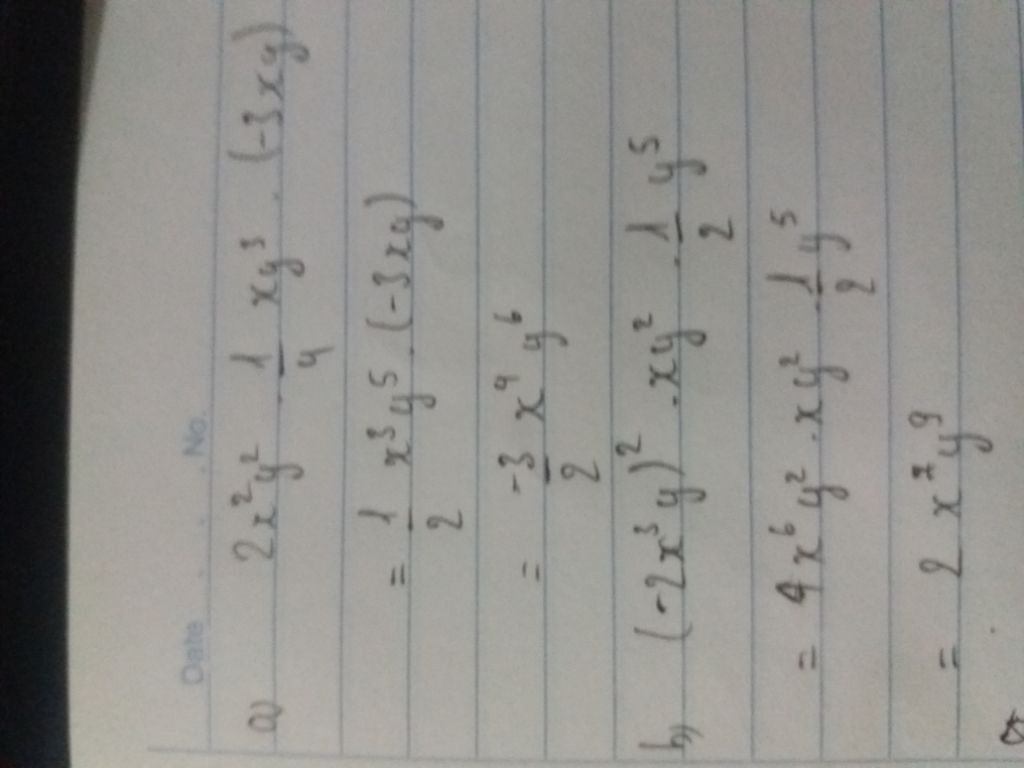 Date . . No.
a) 2x²y² · 1/4 xy³ · (-3xy)
= 1/2 x³y⁵ · (-3xy)
= -3/2 x⁴y⁶
b) (-2x³y)² · xy² · 1/2 y⁵
= 4x⁶y² · xy² · 1/2 y⁵
= 2x⁷y⁹